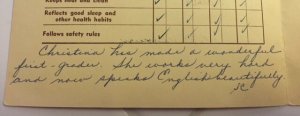 Keeps neat and clean
Reflects good sleep and
other health habits
Follows safety rules
Christina has made a wonderful
first-grader. She works very hard
and now speaks English beautifully.